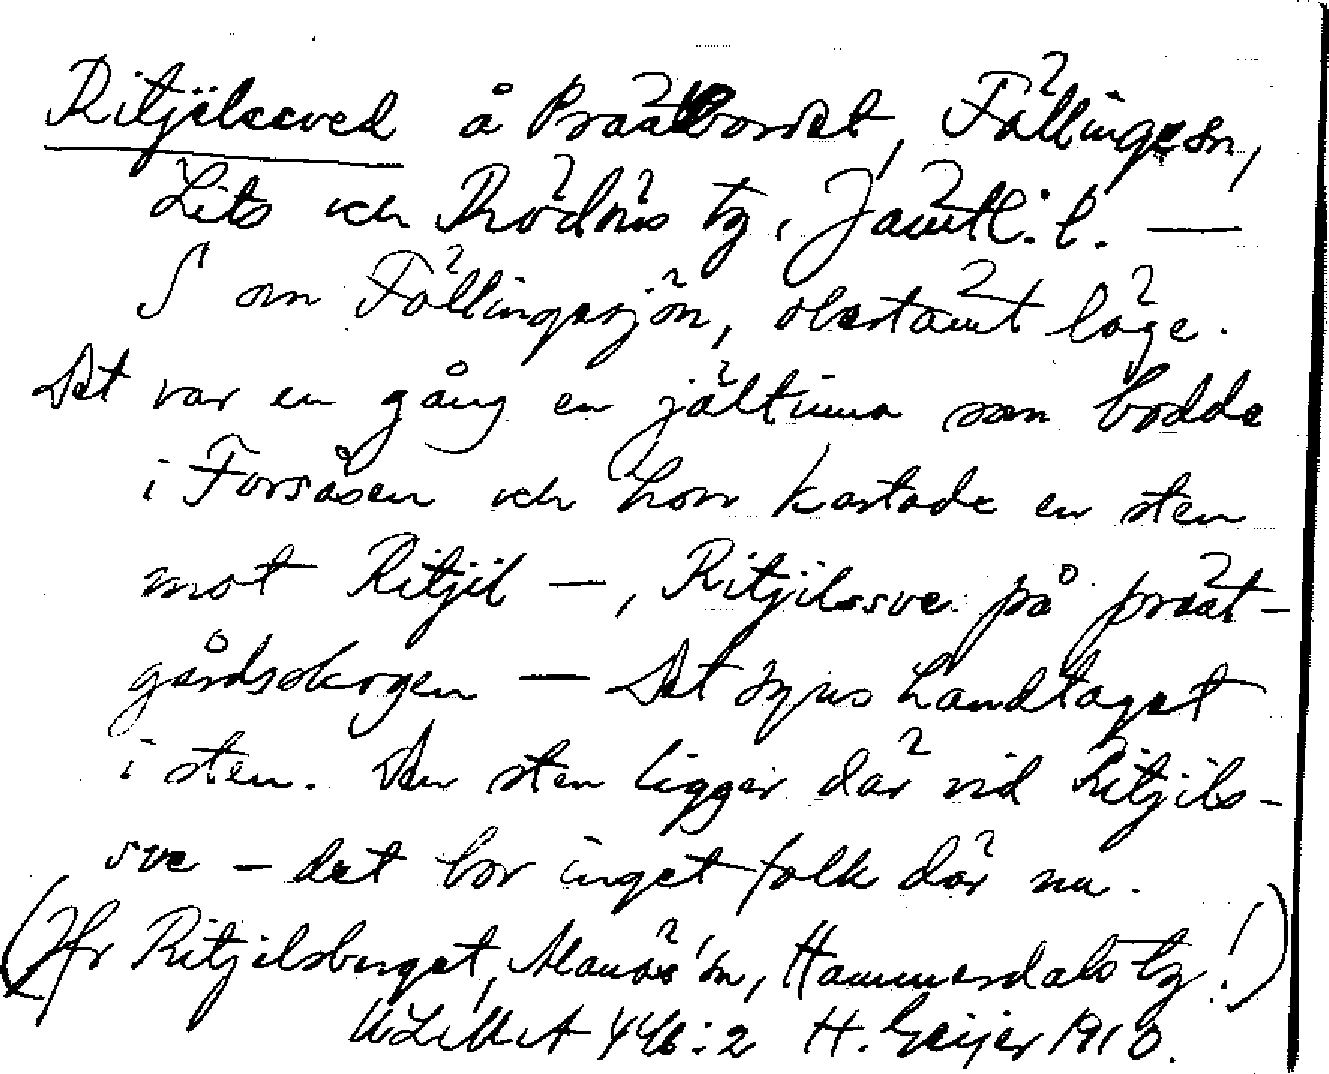 Ritjilssved å Prästbordet, Föllinge sn,
Lits och Rödöns tg, Jämtl. l. —
S om Föllingesjön, obestämt läge.
Det var en gång en jältinna som bodde
i Forsåsen och hon kastade en sten
mot Ritjil —, Ritjilssve på präst-
gårdsskogen — Det synes handtaget
i sten. Den sten ligger där vid Ritjils-
sve – det bor inget folk där nu.
(Jfr Ritjilsberget, Alanäs sn, Hammerdals tg!)
ULMA 446:2 H. Geijer 1910.